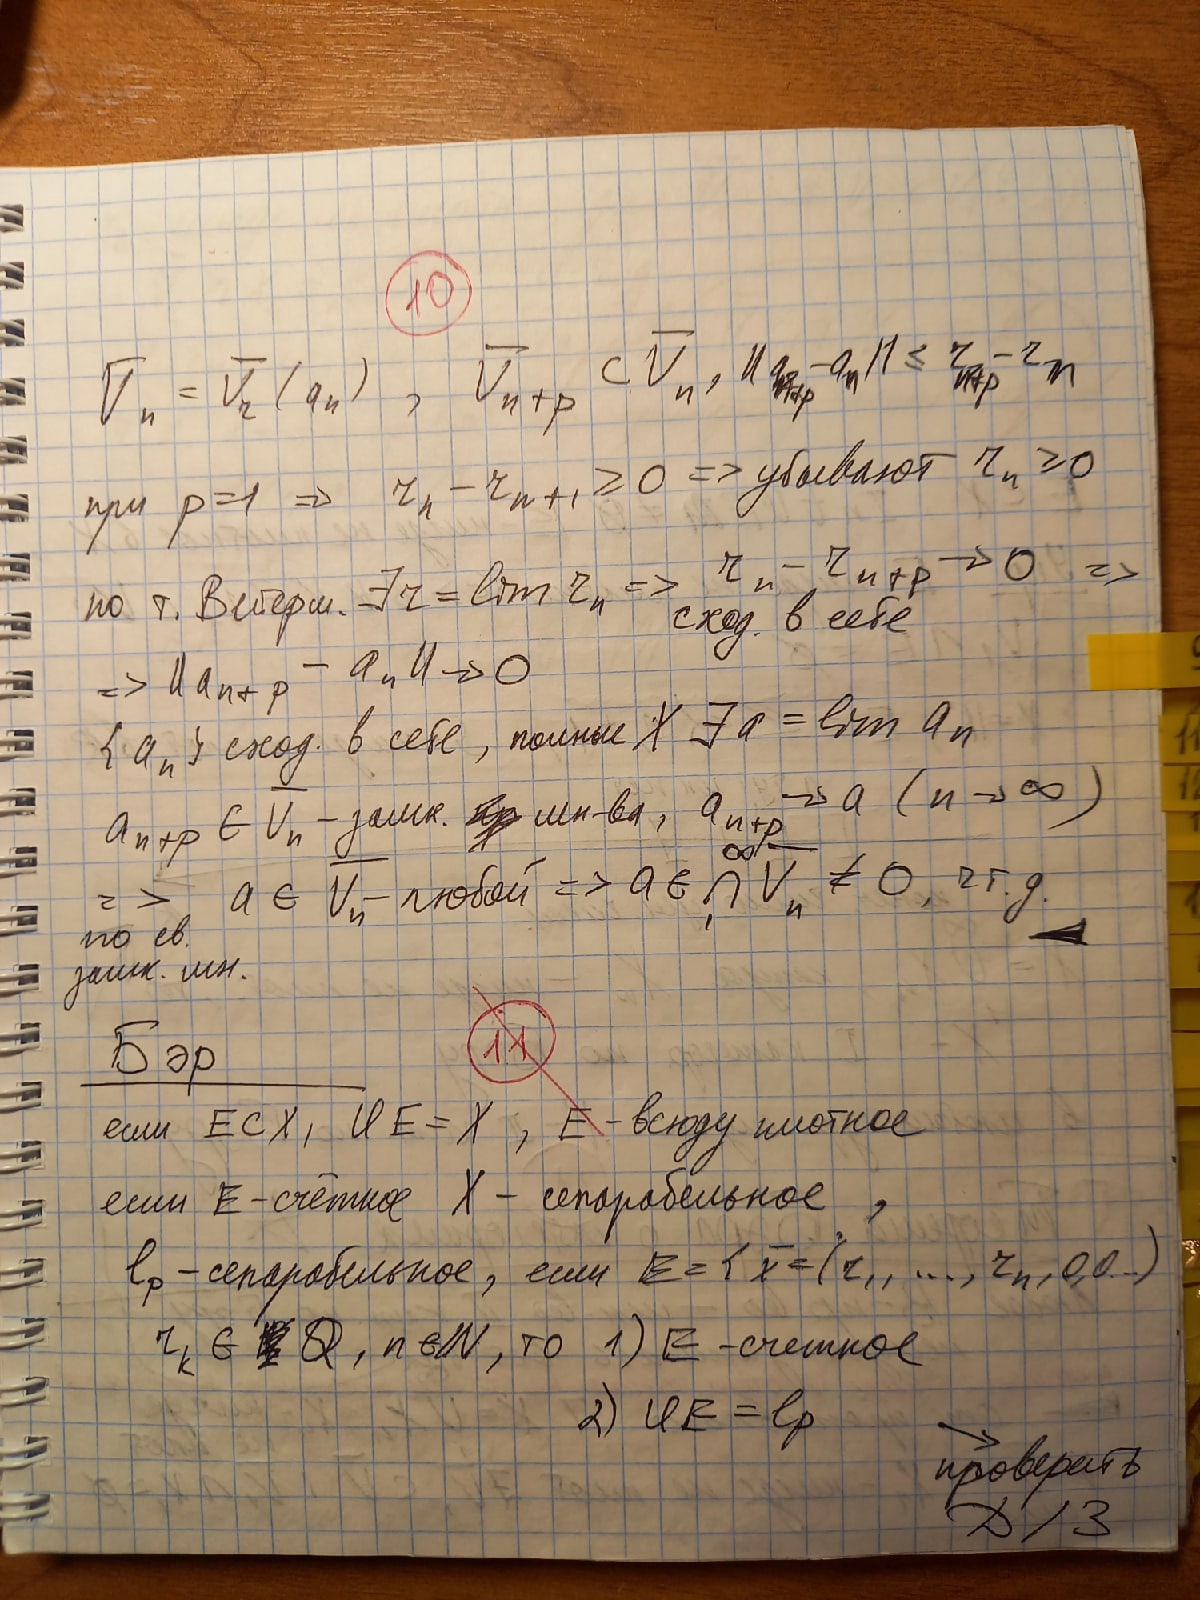 10
V̅ₙ = V̅ᵣ(aₙ), V̅ₙ₊ₚ ⊂ V̅ₙ, ||aₙ₊ₚ - aₙ|| ≤ rₙ₊ₚ - rₙ
при p=1 => rₙ - rₙ₊₁ ≥ 0 => убывают rₙ ≥ 0
по т. Вейерш. ∃r = lim rₙ => rₙ - rₙ₊ₚ → 0 =>
сход. в себе
=> ||aₙ₊ₚ - aₙ|| → 0
{aₙ} сход. в себе, полные X ∃a = lim aₙ
aₙ₊ₚ ∈ V̅ₙ - замк. мн-ва, aₙ₊ₚ → a (n → ∞)
=> a ∈ V̅ₙ - любой => a ∈ ∩₁^∞ V̅ₙ ≠ 0, ч.т.д.
по св.
замк. мн.
11
Бэр
если E ⊂ X, Cl E = X, E - всюду плотное
если E - счётное X - сепарабельное,
lₚ - сепарабельное, если E = {x̅ = (r₁, ..., rₙ, 0,0...)
rₖ ∈ Q, n ∈ N, то 1) E - счетное
2) Cl E = lₚ
→
проверить
Д/З
9
11
12